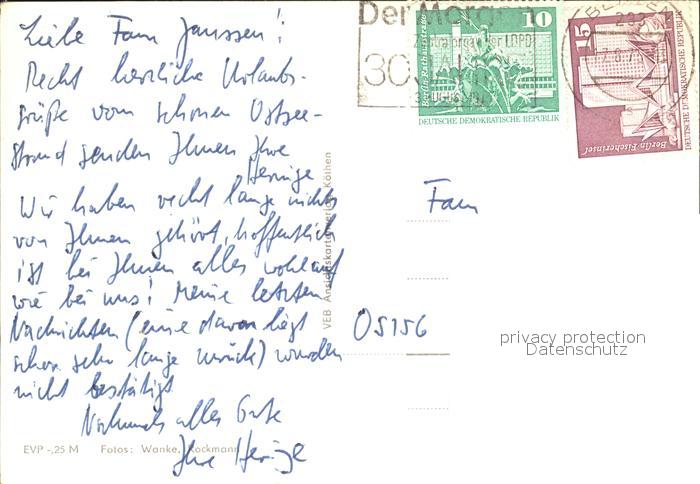 Liebe Fam Janssen!
Recht herzliche Urlaubs-
grüße vom schönen Ostsee-
strand senden Ihnen Ihre
Heringe
Wir haben recht lange nichts
von Ihnen gehört, hoffentlich
ist bei Ihnen alles wohlauf
wie bei uns! Meine letzten
Nachrichten (eine davon liegt
schon sehr lange zurück) wurden
nicht bestätigt
Nochmals alles Gute
Ihre Heringe
EVP -,25 M Fotos: Wanke, Kockmann
VEB Ansichtskartenverlag Köthen
Der Morgen
Zentralorgan der LDPD
30
10
Berlin Rathausstraße
DEUTSCHE DEMOKRATISCHE REPUBLIK
15
Berlin Fischerinsel
DEUTSCHE DEMOKRATISCHE REPUBLIK
Fam
05156
privacy protection
Datenschutz